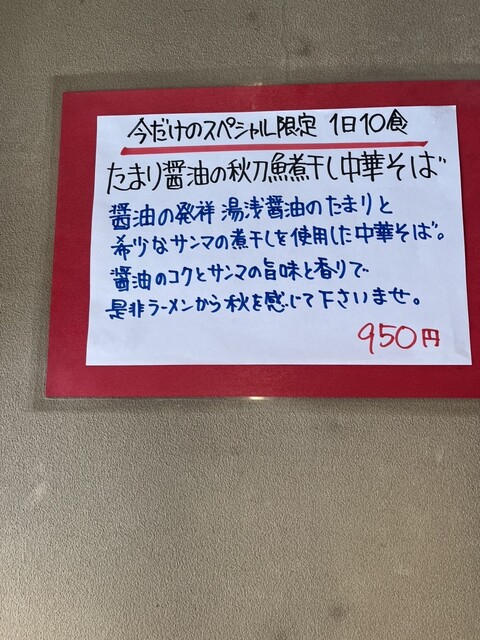 今だけのスペシャル限定 1日10食
たまり醤油の秋刀魚煮干し中華そば
醤油の発祥 湯浅醤油のたまりと
希少なサンマの煮干しを使用した中華そば。
醤油のコクとサンマの旨味と香りで
是非ラーメンから秋を感じて下さいませ。
950円